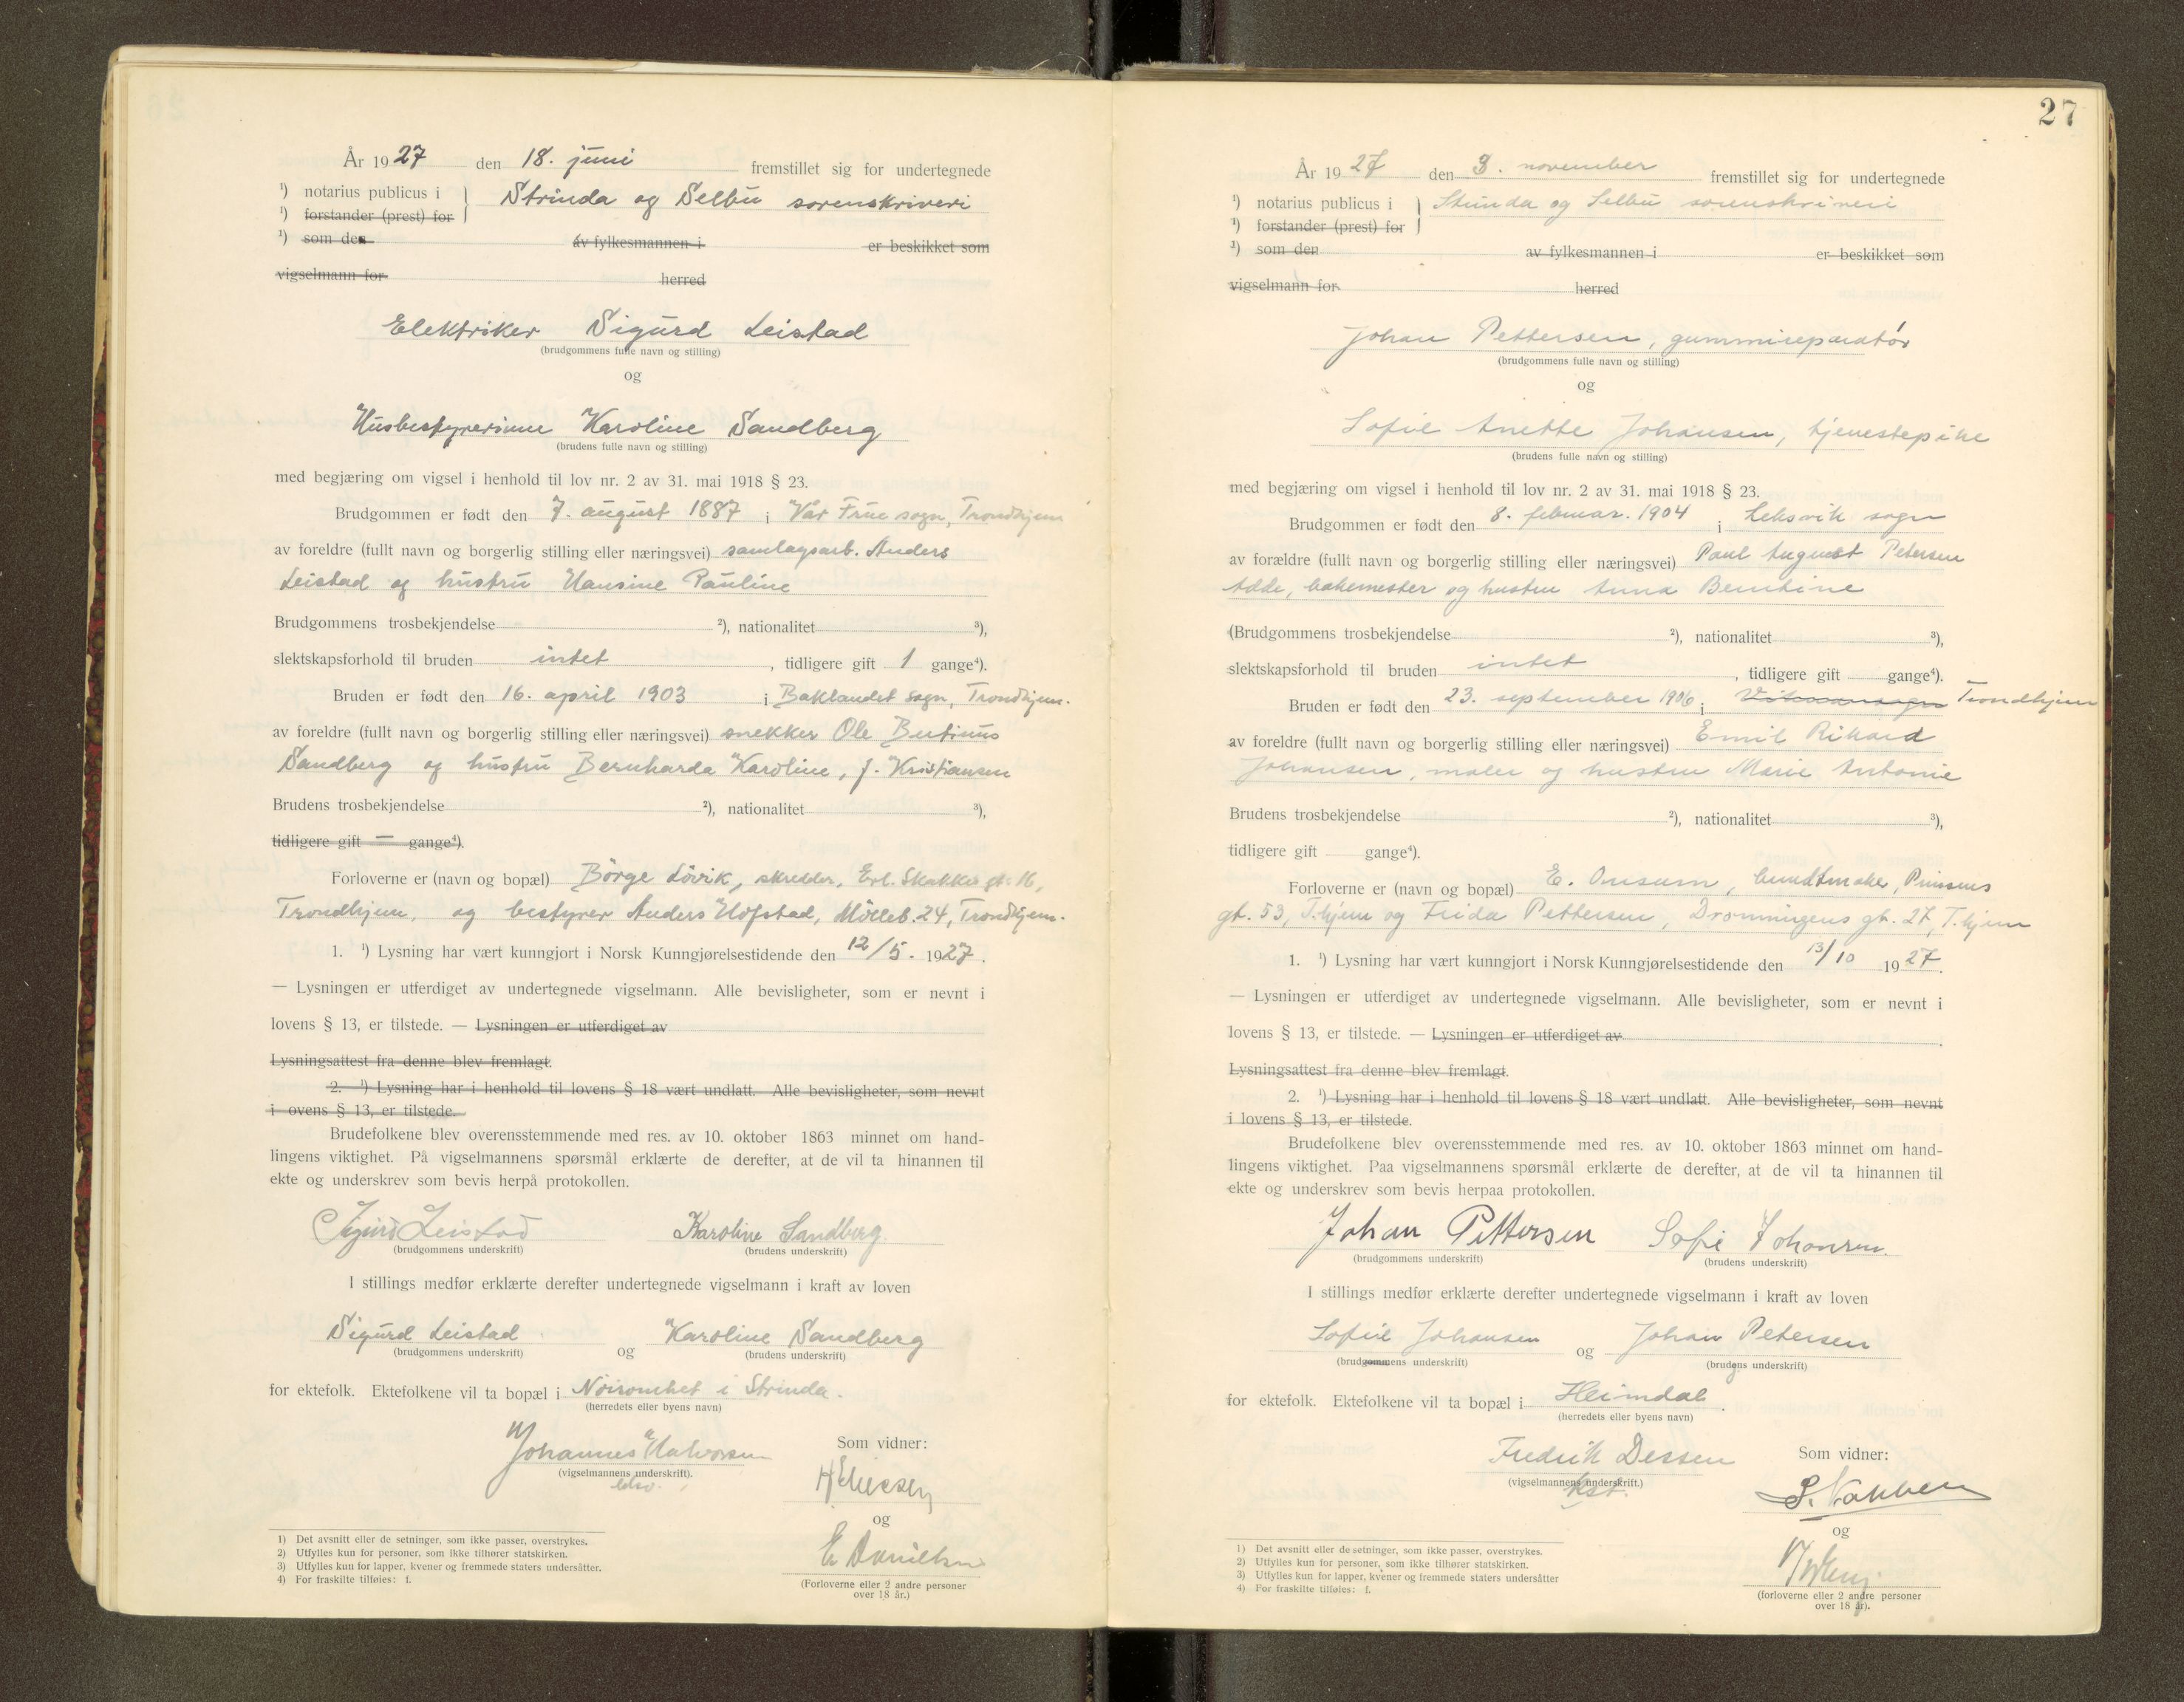 År 1927 den 18. juni fremstillet sig for undertegnede
1) notarius publicus i } Strinda og Selbu sorenskriveri
1) forstander (prest) for
1) som den av fylkesmannen i er beskikket som
vigselmann for herred
Elektriker Sigurd Leistad
(brudgommens fulle navn og stilling)
og
Husbestyrerinne Karoline Sandberg
(brudens fulle navn og stilling)
med begjæring om vigsel i henhold til lov nr. 2 av 31. mai 1918 § 23.
Brudgommen er født den 7. august 1887 i Vår Frue sogn, Trondhjem
av foreldre (fullt navn og borgerlig stilling eller næringsvei) samlagsarb. Anders
Leistad og hustru Hansine Pauline
Brudgommens trosbekjendelse 2), nationalitet 3),
slektskapsforhold til bruden intet, tidligere gift 1 gange4).
Bruden er født den 16. april 1903 i Baklandet sogn, Trondhjem.
av foreldre (fullt navn og borgerlig stilling eller næringsvei) snekker Ole
Sandberg og hustru Bernharda Karoline, f. Kristiansen
Brudens trosbekjendelse 2), nationalitet 3),
tidligere gift — gange4).
Forloverne er (navn og bopæl) Börge Lövik, skredder, Erl. Skakkes gt. 16,
Trondhjem, og bestyrer Anders Hofstad, Mölleb. 24, Trondhjem.
1. 1) Lysning har vært kunngjort i Norsk Kunngjørelsestidende den 12/5. 1927.
— Lysningen er utferdiget av undertegnede vigselmann. Alle bevisligheter, som er nevnt i
lovens § 13, er tilstede. — Lysningen er utferdiget av
Lysningsattest fra denne blev fremlagt.
2. 1) Lysning har i henhold til lovens § 18 vært undlatt. Alle bevisligheter, som nevnt
i ovens § 13, er tilstede.
Brudefolkene blev overensstemmende med res. av 10. oktober 1863 minnet om hand-
lingens viktighet. På vigselmannens spørsmål erklærte de derefter, at de vil ta hinannen til
ekte og underskrev som bevis herpå protokollen.
Sigurd Leistad Karoline Sandberg
(brudgommens underskrift) (brudens underskrift)
I stillings medfør erklærte derefter undertegnede vigselmann i kraft av loven
Sigurd Leistad og Karoline Sandberg
(brudgommens underskrift) (brudens underskrift)
for ektefolk. Ektefolkene vil ta bopæl i Nöisomhet i Strinda.
(herredets eller byens navn)
Johannes Halvorsen Som vidner:
(vigselmannens underskrift).
og
E. Danielsen
(Forloverne eller 2 andre personer
over 18 år.)
1) Det avsnitt eller de setninger, som ikke passer, overstrykes.
2) Utfylles kun for personer, som ikke tilhører statskirken.
3) Utfylles kun for lapper, kvener og fremmede staters undersåtter.
4) For fraskilte tilføies: f.
27
År 1927 den 3. november fremstillet sig for undertegnede
1) notarius publicus i } Strinda og Selbu sorenskriveri
1) forstander (prest) for
1) som den av fylkesmannen i er beskikket som
vigselmann for herred
Johan Pettersen, gummireparatör
(brudgommens fulle navn og stilling)
og
Sofie Anette Johansen, tjenestepike
(brudens fulle navn og stilling)
med begjæring om vigsel i henhold til lov nr. 2 av 31. mai 1918 § 23.
Brudgommen er født den 8. februar. 1904 i Leksvik sogn
av forældre (fullt navn og borgerlig stilling eller næringsvei) Paul August Petersen
Adde, bakemester og hustru Anna Berntine
(Brudgommens trosbekjendelse 2), nationalitet 3),
slektskapsforhold til bruden intet, tidligere gift gange4).
Bruden er født den 23. september 1906 i Trondhjem
av foreldre (fullt navn og borgerlig stilling eller næringsvei) Emil Rikard
Johansen, maler og hustru Marie Antonie
Brudens trosbekjendelse 2), nationalitet 3),
tidligere gift gange4).
Forloverne er (navn og bopæl) E. Onsum, bundtmaker, Prinsens
gt. 53, T.hjem og Frida Pettersen, Dronningens gt. 27, T.hjem
1. 1) Lysning har vært kunngjort i Norsk Kunngjørelsestidende den 13/10 1927.
— Lysningen er utferdiget av undertegnede vigselmann. Alle bevisligheter, som er nevnt i
lovens § 13, er tilstede. — Lysningen er utferdiget av
Lysningsattest fra denne blev fremlagt.
2. 1) Lysning har i henhold til lovens § 18 vært undlatt. Alle bevisligheter, som nevnt
i lovens § 13, er tilstede.
Brudefolkene blev overensstemmende med res. av 10. oktober 1863 minnet om hand-
lingens viktighet. Paa vigselmannens spørsmål erklærte de derefter, at de vil ta hinannen til
ekte og underskrev som bevis herpaa protokollen.
Johan Pettersen Sofie Johansen
(brudgommens underskrift) (brudens underskrift)
I stillings medfør erklærte derefter undertegnede vigselmann i kraft av loven
Sofie Johansen og Johan Petersen
(brudgommens underskrift) (brudens underskrift)
for ektefolk. Ektefolkene vil ta bopæl i Heimdal.
(herredets eller byens navn)
Fredrik Dessen Som vidner:
(vigselmannens underskrift.)
kst.
og
(forloverne eller 2 andre personer
over 18 år).
1) Det avsnitt eller de setninger, som ikke passer, overstrykes.
2) Utfylles kun for personer, som ikke tilhører statskirken.
3) Utfylles kun for lapper, kvener og fremmede staters undersåtter
4) For fraskilte tilføies: f.